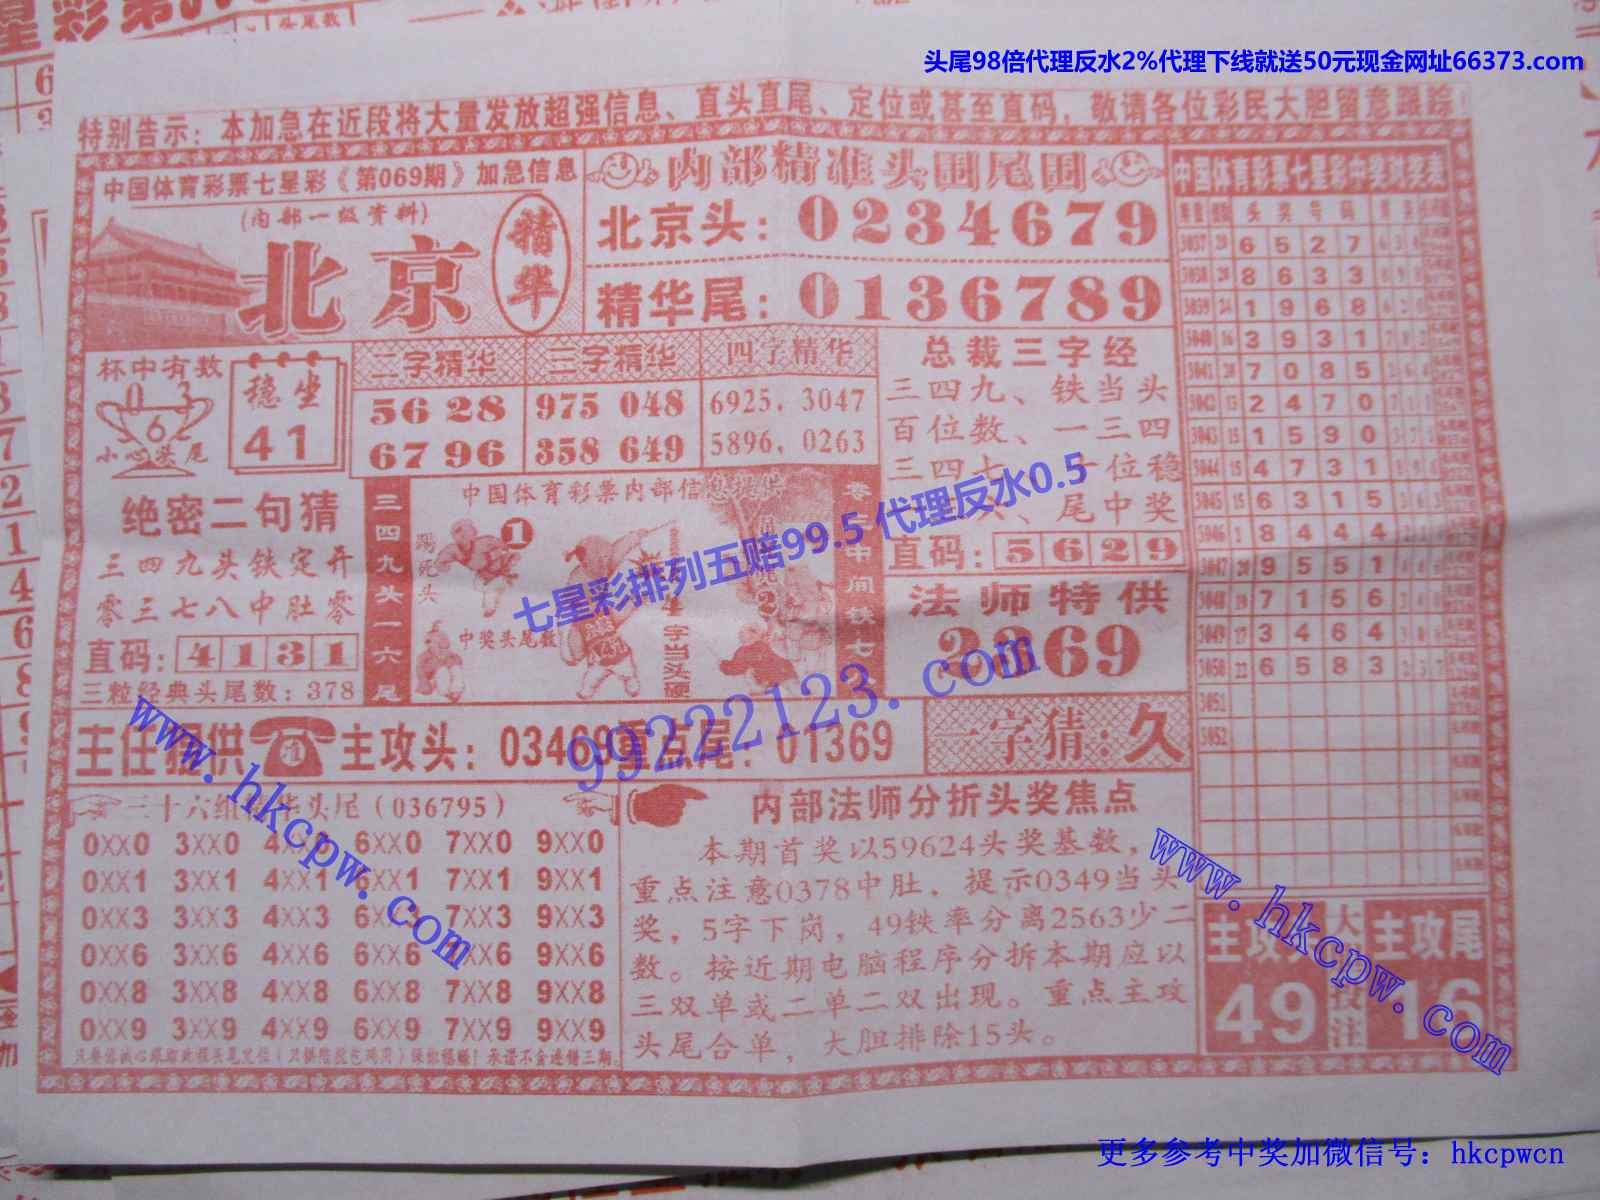 头尾98倍代理反水2%代理下线就送50元现金网址66373.com
特别告示：本加急在近段将大量发放超强信息、直头直尾、定位或甚至直码，敬请各位彩民大胆留意跟踪！
中国体育彩票七星彩《第069期》加急信息
(内部一级资料)
北京 精华
内部精准头围尾围
北京头：0234679
精华尾：0136789
杯中有数
0 3
6
小心头尾
稳坐
41
二字精华 三字精华 四字精华
56 28 975 048 6925. 3047
67 96 358 649 5896. 0263
总裁三字经
三四九、铁当头
百位数、一三四
三四七、十位稳
六、尾中奖
直码：5629
绝密二句猜
三四九头铁定开
零三七八中肚零
直码：4131
三粒经典头尾数：378
三四九头一六尾
中国体育彩票内部信息提供
踢死头
1
中奖头尾数
4字当头硬
2
法师特供
2869
主任提供 准 主攻头：03469重点尾：01369
一字猜：久
三十六组精华头尾（036795）
0XX0 3XX0 4XX0 6XX0 7XX0 9XX0
0XX1 3XX1 4XX1 6XX1 7XX1 9XX1
0XX3 3XX3 4XX3 6XX3 7XX3 9XX3
0XX6 3XX6 4XX6 6XX6 7XX6 9XX6
0XX8 3XX8 4XX8 6XX8 7XX8 9XX8
0XX9 3XX9 4XX9 6XX9 7XX9 9XX9
内部法师分折头奖焦点
本期首奖以59624头奖基数，
重点注意0378中肚，提示0349当头
奖，5字下岗，49铁率分离2563少二
数。按近期电脑程序分拆本期应以
三双单或二单二双出现。重点主攻
头尾合单，大胆排除15头。
中国体育彩票七星彩中奖对奖表
头 奖 号 码
3037 20 6 5 2 7
3038 20 8 6 3 3
3039 24 1 9 6 8
3040 16 3 9 3 1
3041 20 7 0 8 5
3042 13 2 4 7 0
3043 15 1 5 9 0
3044 15 4 7 3 1
3045 15 6 3 1 5
3046 8 4 4 4
3047 20 9 5 5 1
3048 19 7 1 5 6
3049 17 3 4 6 4
3050 22 6 5 8 3
3051
3052
主攻 主攻尾
49 16
七星彩排列五赔99.5 代理反水0.5
99222123.com
www.hkcpw.com
www.hkcpw.com
更多参考中奖加微信号：hkcpwcn